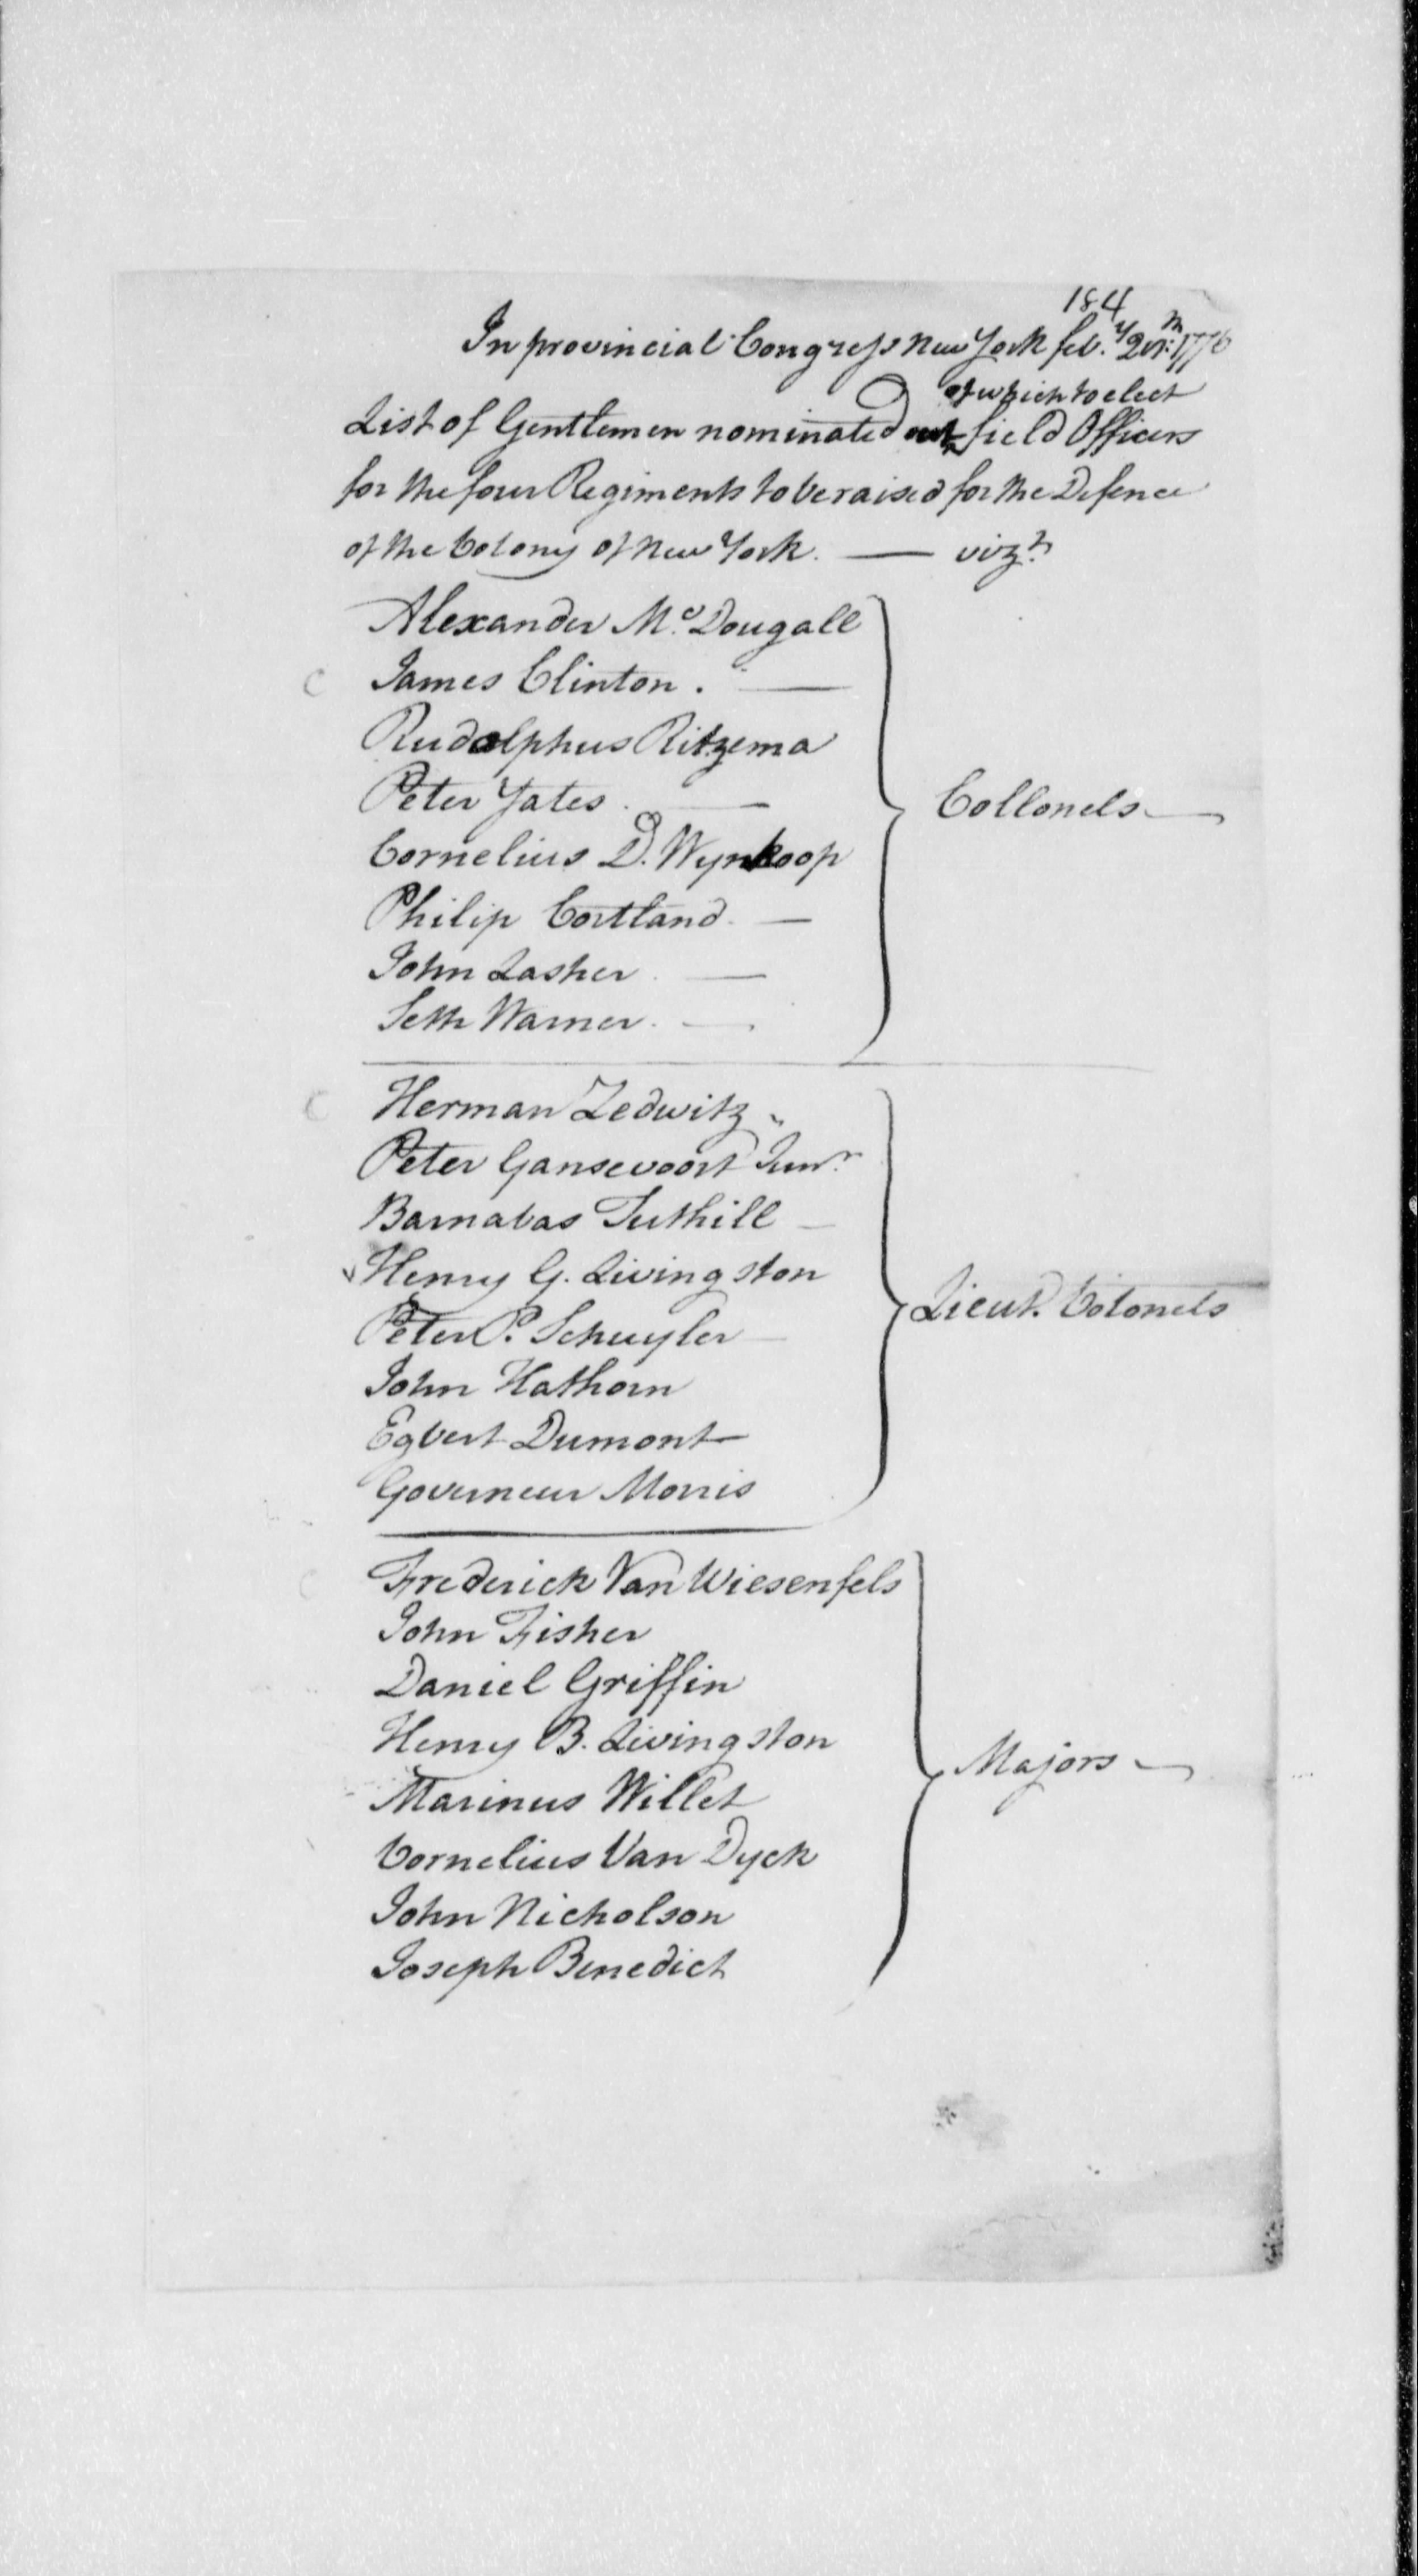 184
In provincial Congress New York feb.y 20th: 1776
of which to elect
List of Gentlemen nominated out field Officers
for the four Regiments to be raised for the Defence
of the Colony of New York. — vizt.
Alexander Mc.Dougall
James Clinton. —
Rudolphus Ritzema
Peter Yates. —
Collonels —
Cornelius D. Wynkoop
Philip Cortland. —
John Lasher. —
Seth Warner. —
Herman Zedwitz
Peter Gansevoort Junr.
Barnabas Tuthill —
Henry G. Livingston
Lieut. Colonels
Peter P. Schuyler —
John Hathorn
Egbert Dumont
Governeur Morris
Frederick Van Wiesenfels
John Fisher
Daniel Griffin
Henry B. Livingston
Majors —
Marinus Willet
Cornelius Van Dyck
John Nicholson
Joseph Benedict